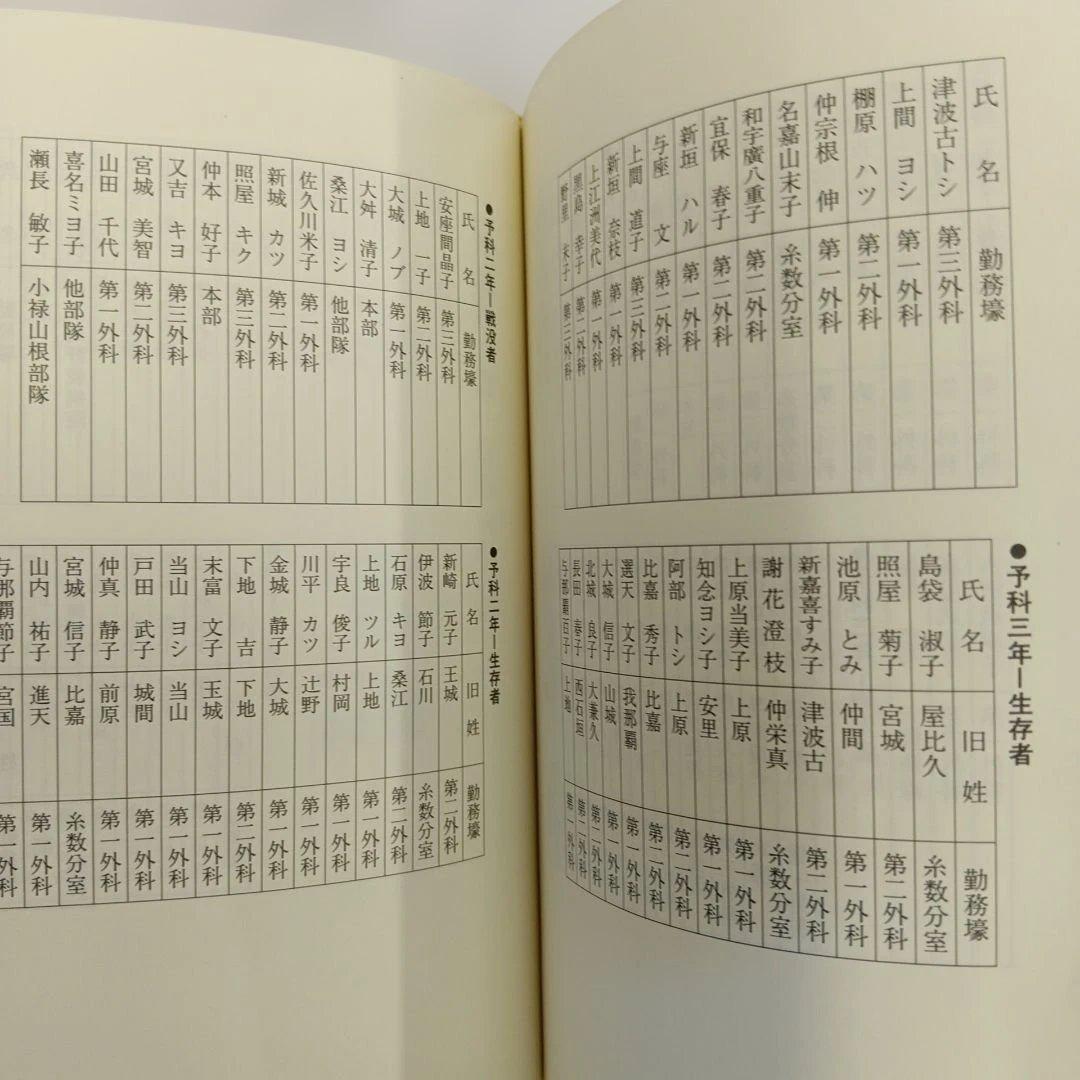 氏名 勤務壕
津波古トシ 第三外科
上間 ヨシ 第一外科
棚原 ハツ 第二外科
仲宗根 伸 第一外科
名嘉山末子 糸数分室
和宇廣八重子 第二外科
宜保 春子 第二外科
新垣 ハル 第一外科
与座 文 第二外科
上間 道子 第三外科
新垣 奈枝 第一外科
上江洲美代 第一外科
黒島 幸子 第二外科
野里 末子 第三外科
●予科三年ー生存者
氏名 旧姓 勤務壕
島袋 淑子 屋比久 糸数分室
照屋 菊子 宮城 第二外科
池原 とみ 仲間 第一外科
新嘉喜すみ子 津波古 第二外科
謝花 澄枝 仲栄真 糸数分室
上原当美子 上原 第一外科
知念ヨシ子 安里 第一外科
阿部 トシ 上原 第二外科
比嘉 秀子 比嘉 第二外科
選天 文子 我那覇 第一外科
大城 信子 山城 第一外科
北城 良子 大兼久 第二外科
長田 春子 西石垣 第二外科
与那覇百子 上地 第一外科
●予科二年ー戦没者
氏名 勤務壕
安座間晶子 第三外科
上地 一子 第二外科
大城 ノブ 第一外科
大舛 清子 本部
桑江 ヨシ 他部隊
佐久川米子 第一外科
新城 カツ 第二外科
照屋 キク 第三外科
仲本 好子 本部
又吉 キヨ 第三外科
宮城 美智 第二外科
山田 千代 第一外科
喜名ミヨ子 他部隊
瀬長 敏子 小禄山根部隊
●予科二年ー生存者
氏名 旧姓 勤務壕
新崎 元子 玉城 第二外科
伊波 節子 石川 糸数分室
石原 キヨ 桑江 第二外科
上地 ツル 上地 第一外科
宇良 俊子 村岡 第一外科
川平 カツ 辻野 第一外科
金城 静子 大城 第一外科
下地 吉 下地 第二外科
末富 文子 玉城 第一外科
当山 ヨシ 当山 第一外科
戸田 武子 城間 第一外科
仲真 静子 前原 第一外科
宮城 信子 比嘉 糸数分室
山内 祐子 進天 第一外科
与那覇節子 宮国 第一外科